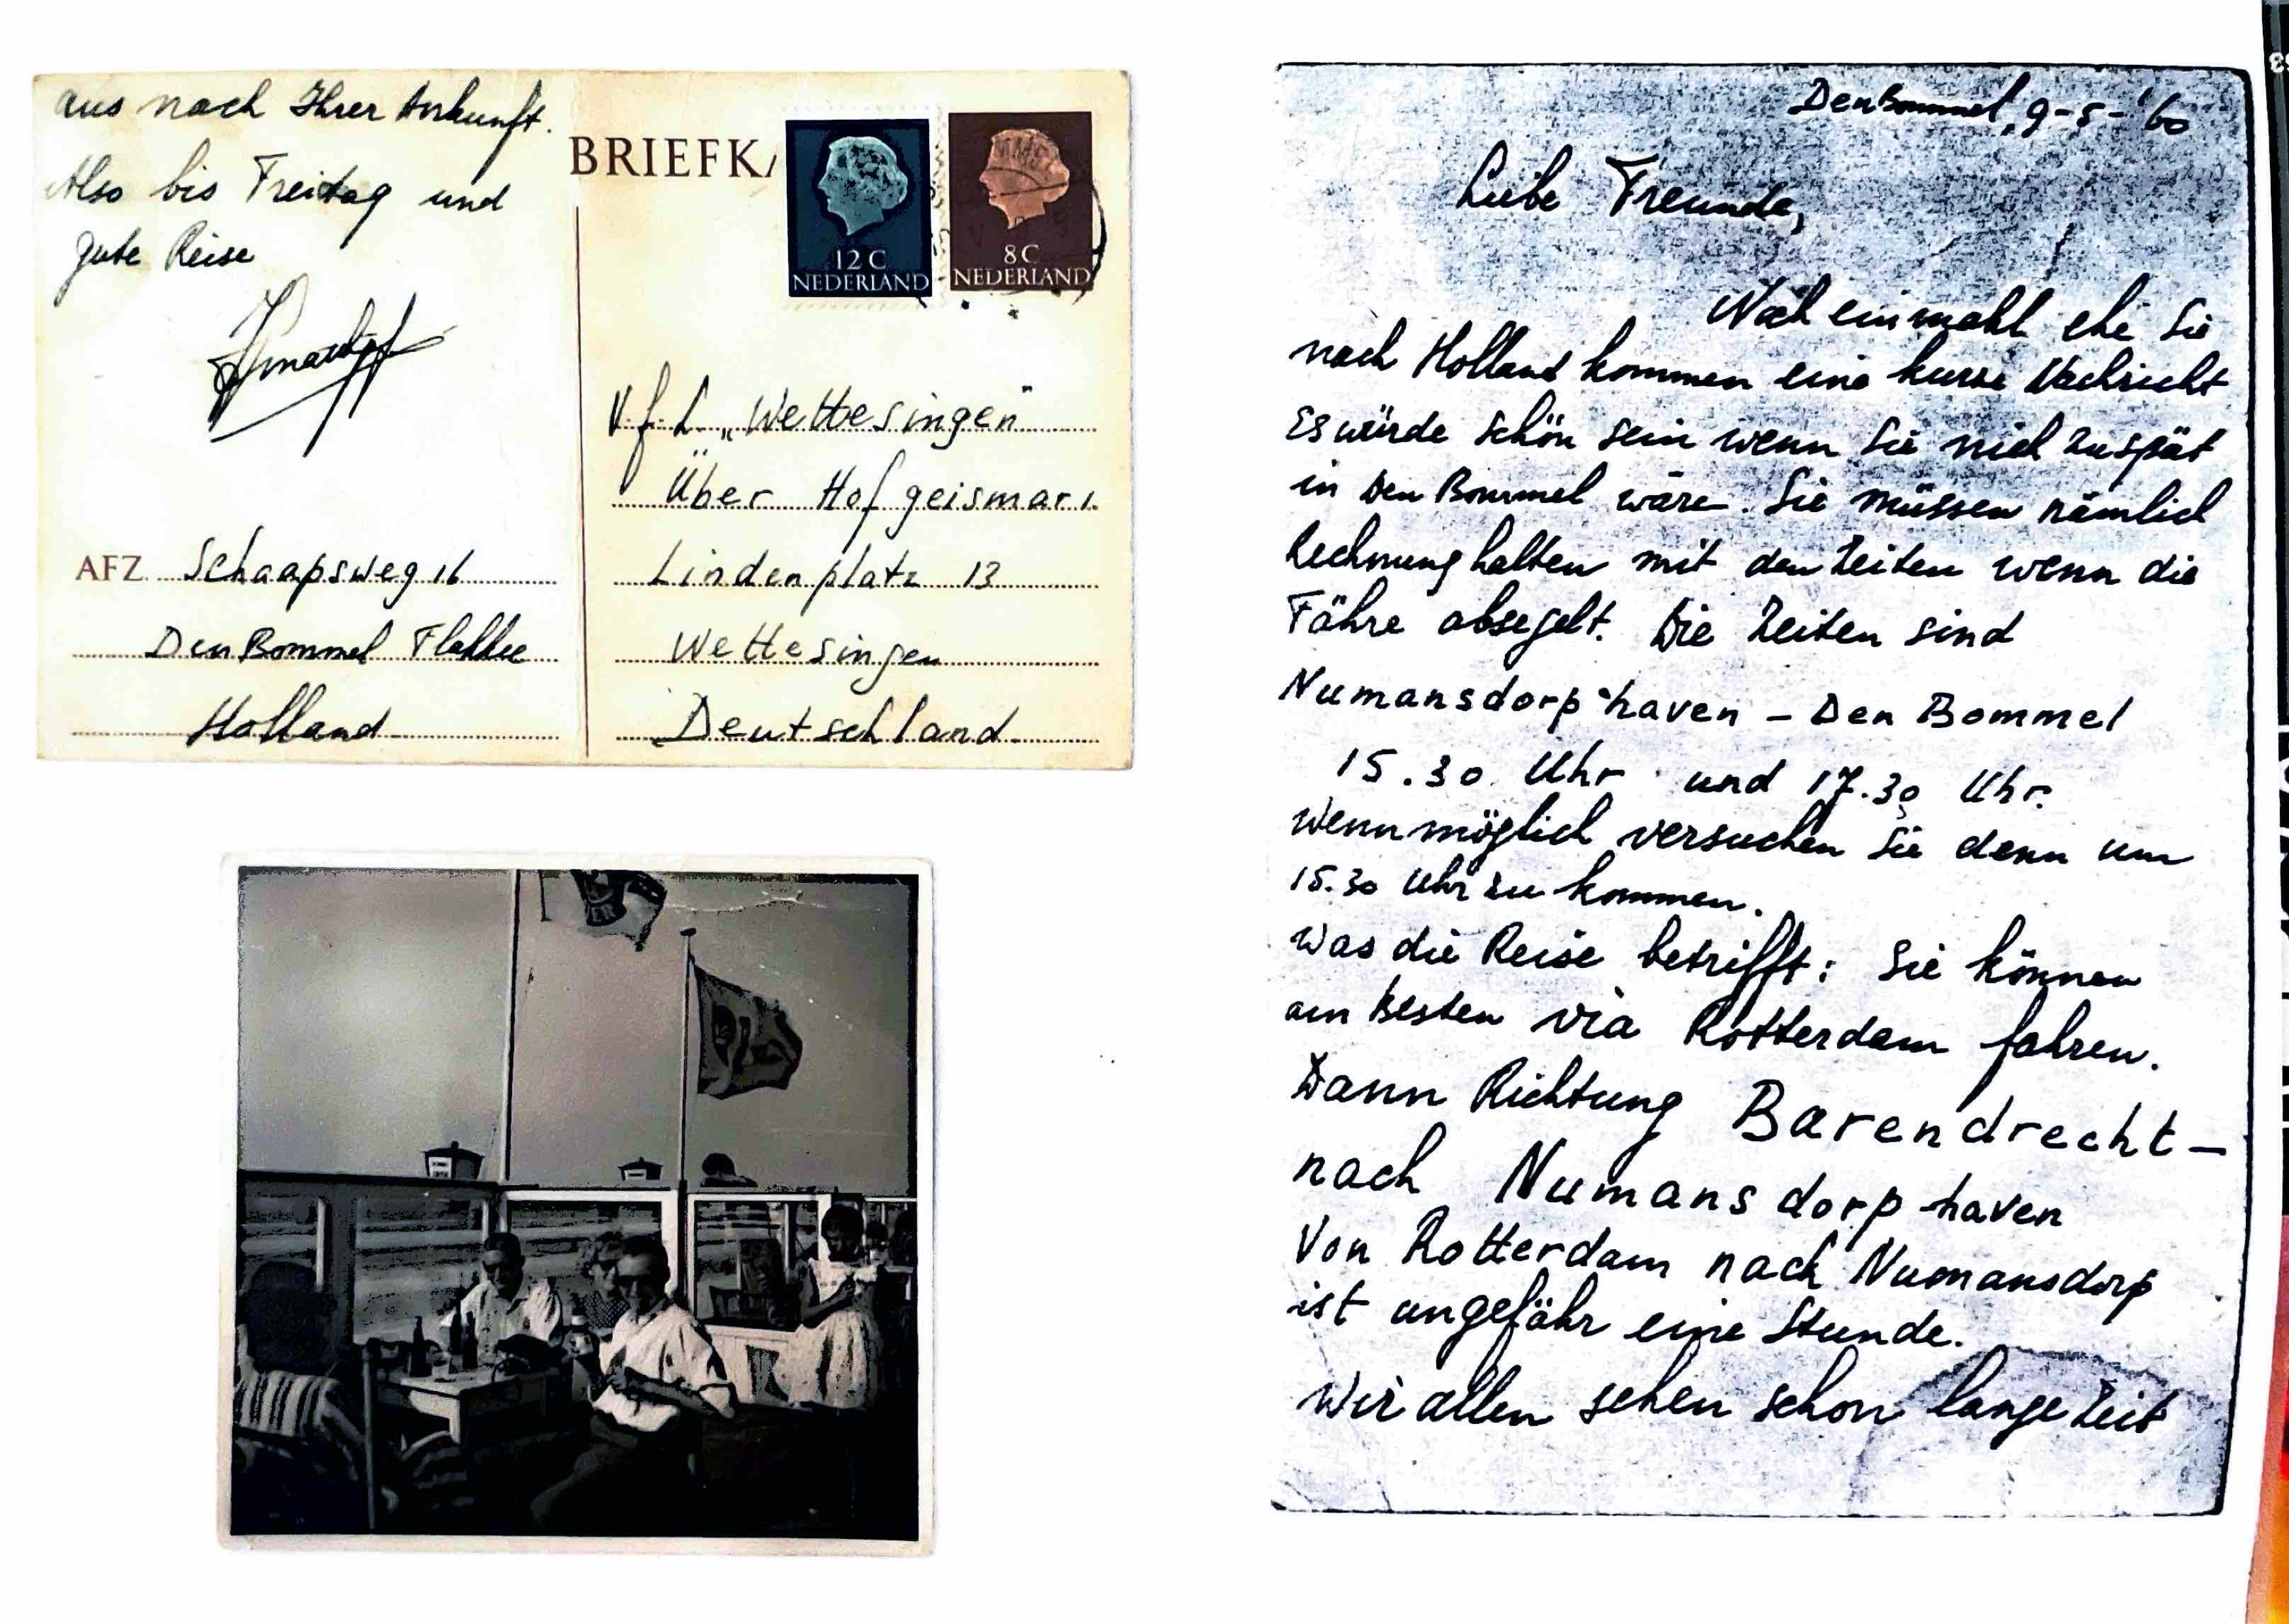 aus nach Ihrer Ankunft.
Also bis Freitag und
gute Reise
BRIEFKA
12 C
NEDERLAND
8 C
NEDERLAND
V.f.L. „Wettesingen"
Über Hofgeismar 1.
Lindenplatz 13
Wettesingen
Deutschland
AFZ. Schaapsweg 16
Den Bommel Flakkee
Holland
Den Bommel, 9-5-'60
Liebe Freunde,
Noch einmahl ehe Sie
nach Holland kommen eine kurze Nachricht
Es würde schön sein wenn Sie nich zuspät
in Den Bommel wäre. Sie müssen nämlich
Rechnung halten mit den Zeiten wenn die
Fähre absegelt. Die Zeiten sind
Numansdorp haven – Den Bommel
15.30 Uhr und 17.30 Uhr.
Wenn möglich versuchen Sie denn um
15.30 Uhr zu kommen.
Was die Reise betrifft: Sie können
am besten via Rotterdam fahren.
Dann Richtung Barendrecht –
nach Numansdorp haven
Von Rotterdam nach Numansdorp
ist ungefähr eine Stunde.
Wir allen sehen schon lange Zeit